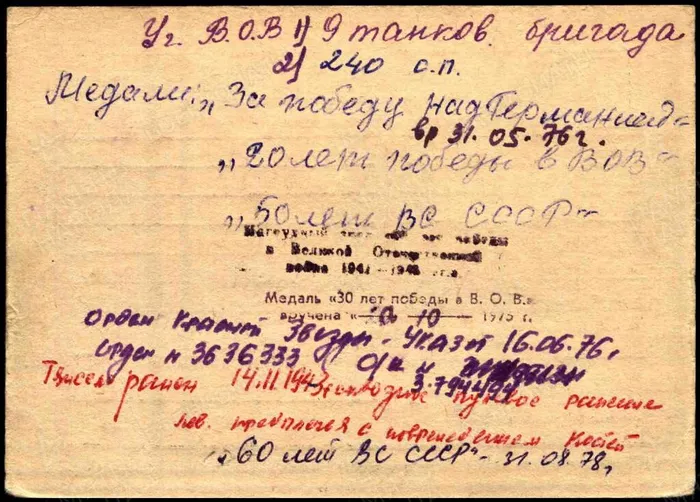 Уг. В.О.В 1) 9 танков. бригада
2) 240 с.п.
Медали: „За победу над Германией"
вр 31.05.76г.
„20 лет победы в ВОВ"
„50 лет ВС СССР"
Нагрудный знак лет победы
в Великой Отечественной
войне 1941-1945 гг.
Медаль «30 лет победы в В. О. В.»
вручена « 10 1975 г.
Орден Красной Звезды. Указ 16.06.76г
орден н 3636333
3.794404
Тяжело ранен 14.11.1943 пулевое ранение
лев. предплечья с повреждением костей
„60 лет ВС СССР" - 31.08.78г